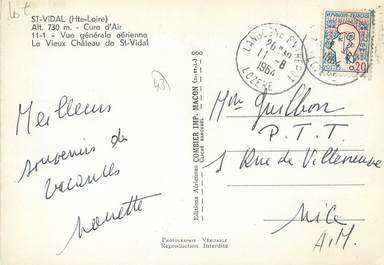 Lot
ST-VIDAL (Hte-Loire)
Alt. 730 m. - Cure d'Air
11-1 - Vue générale aérienne
Le Vieux Château de St-Vidal
43
Meilleurs
souvenirs de
vacances
Nanette
Éditions Aériennes COMBIER IMP. MACON (S.-et-L.)
PHOTOGRAPHIE VÉRITABLE
Reproduction Interdite
LANGOGNE ENTREPOT
11-8
1964
LOZERE
0,20
Mr Guilbon
P.T.T.
1 Rue de Villeneuve
Nice
A.M.